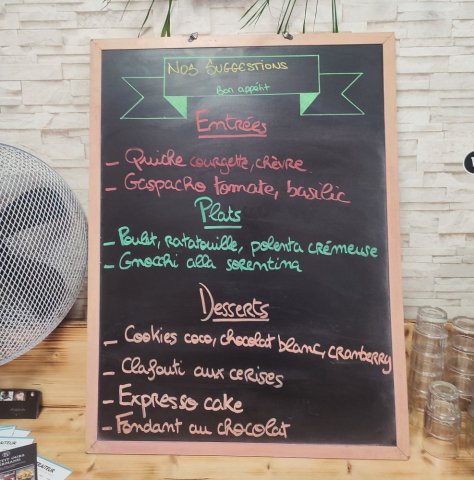 Nos Suggestions
Bon appétit
Entrées
- Quiche courgette, chèvre
- Gaspacho tomate, basilic
Plats
- Poulet, ratatouille, polenta crémeuse
- Gnocchi alla sorentina
Desserts
- Cookies coco, chocolat blanc, cranberry
- Clafouti aux cerises
- Expresso cake
- Fondant au chocolat